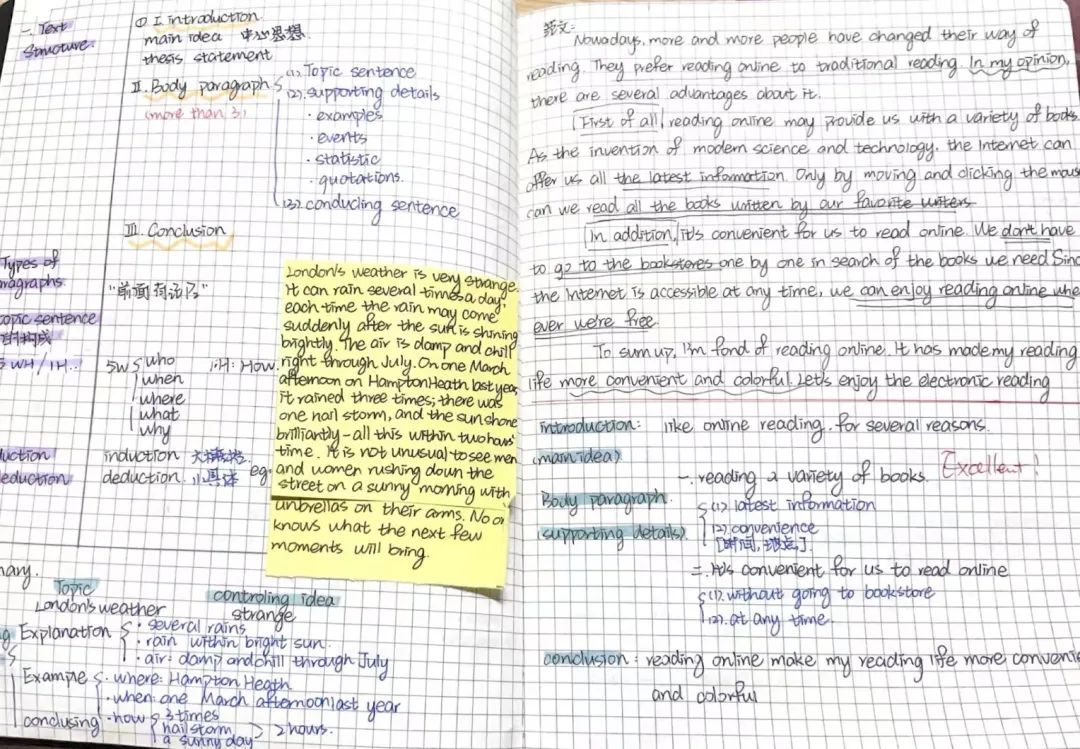 一. Text Structure.
① I. introduction
main idea 中心思想.
thesis statement
II. Body paragraph
(more than 3)
(1). Topic sentence
(2). supporting details
· examples
· events
· statistic
· quotations.
(3). conducling sentence
III. Conclusion
Types of
ragraphs.
opic sentence
5 WH / 1H..
5W who
when
where
what
why
1H: How.
uction
induction
eduction
deduction: 小具体
eg:
London's weather is very strange.
It can rain several times a day,
each time the rain may come
suddenly after the sun is shining
brightly. The air is damp and chill
right through July. On one March
afternoon on Hampton Heath last year,
it rained three times; there was
one hail storm, and the sun shone
brilliantly - all this within two hours'
time. It is not unusual to see men
and women rushing down the
street on a sunny morning with
unbrellas on their arms. No o
knows what the next few
moments will bring.
nary.
Topic
controling idea
London's weather
strange
Explanation
· several rains
· rain within bright sun.
· air: damp and chill through July
Example
· where: Hampton Heath
· when: one March afternoon last year
conclusing
· how
3 times
hail storm
a sunny day
2 hours.
范文:
Nowadays, more and more people have changed their way of
reading. They prefer reading online to traditional reading. In my opinion,
there are several advantages about it.
First of all, reading online may provide us with a variety of books.
As the invention of modern science and technology, the Internet can
offer us all the latest information. Only by moving and clicking the mous
can we read all the books written by our favorite writers
In addition, it's convenient for us to read online. We don't have
to go to the bookstores one by one in search of the books we need Sinc
the Internet is accessible at any time, we can enjoy reading online whe
ever we're free.
To sum up, I'm fond of reading online. It has made my reading
life more convenient and colorful. Let's enjoy the electronic reading
introduction: like online reading. for several reasons.
(main idea)
Excellent!
一. reading a variety of books.
Body paragraph.
(1) latest information
(supporting details).
(2). convenience
[时间, 地点].
二. It's convenient for us to read online
(1). without going to bookstore
(2). at any time.
conclusion: reading online make my reading life more convenie
and colorful